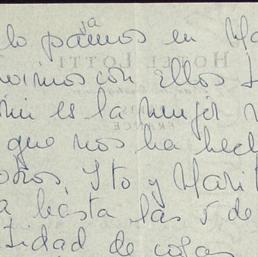 lo pasamos en Ma
vimos con ellos
mi es la mujer
que nos ha hech
Ito y Marit
a hasta las 5 de
tidad de cosas
HOTEL LOTTI